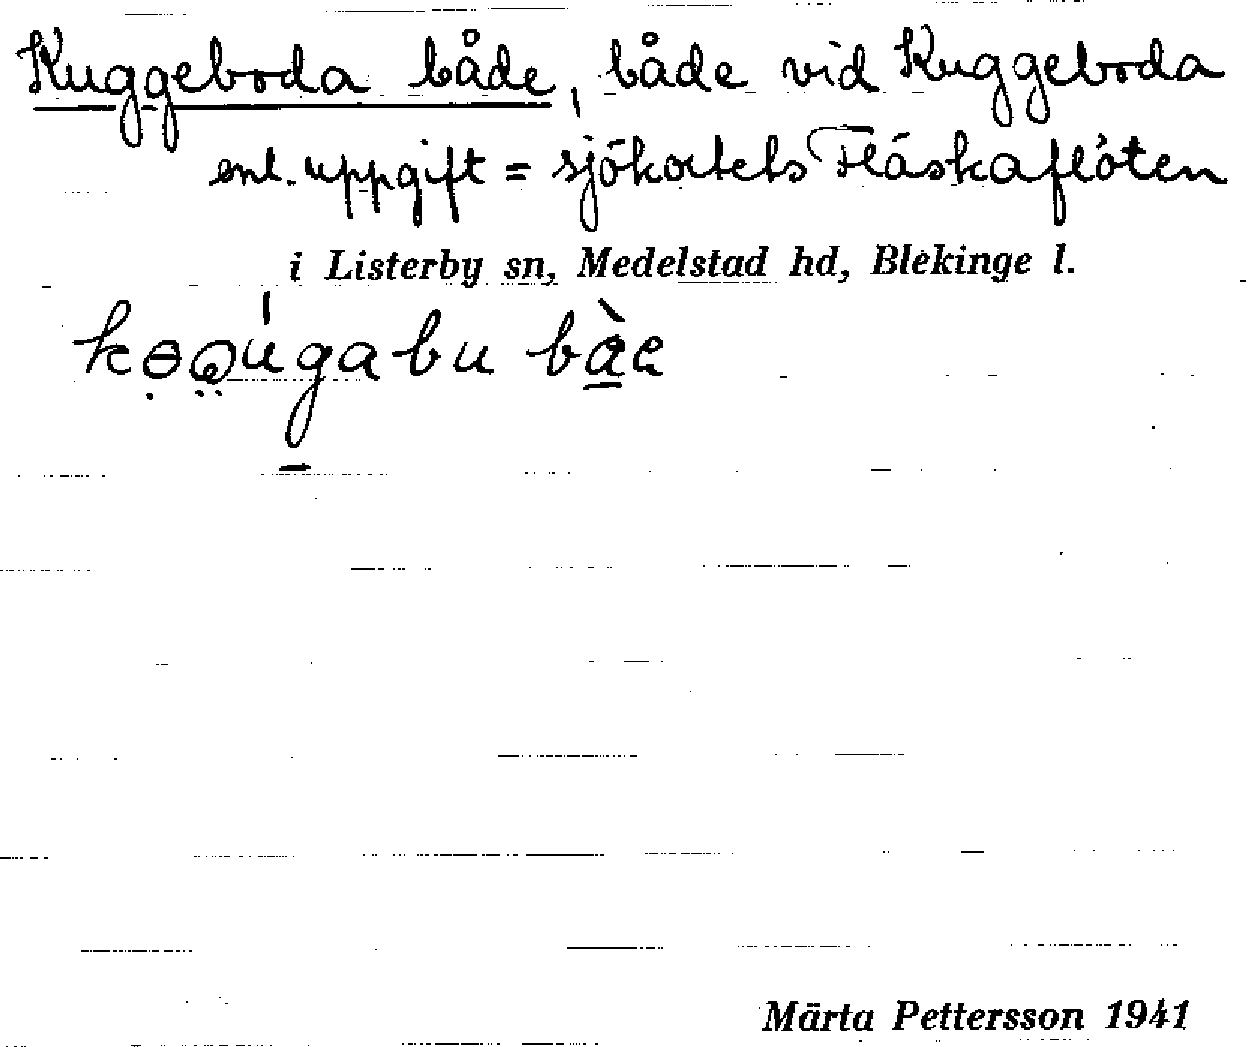 Kuggeboda både, både vid Kuggeboda
enl. uppgift = sjökortets Fläskaflöten
i Listerby sn, Medelstad hd, Blekinge l.
bàe
Märta Pettersson 1941